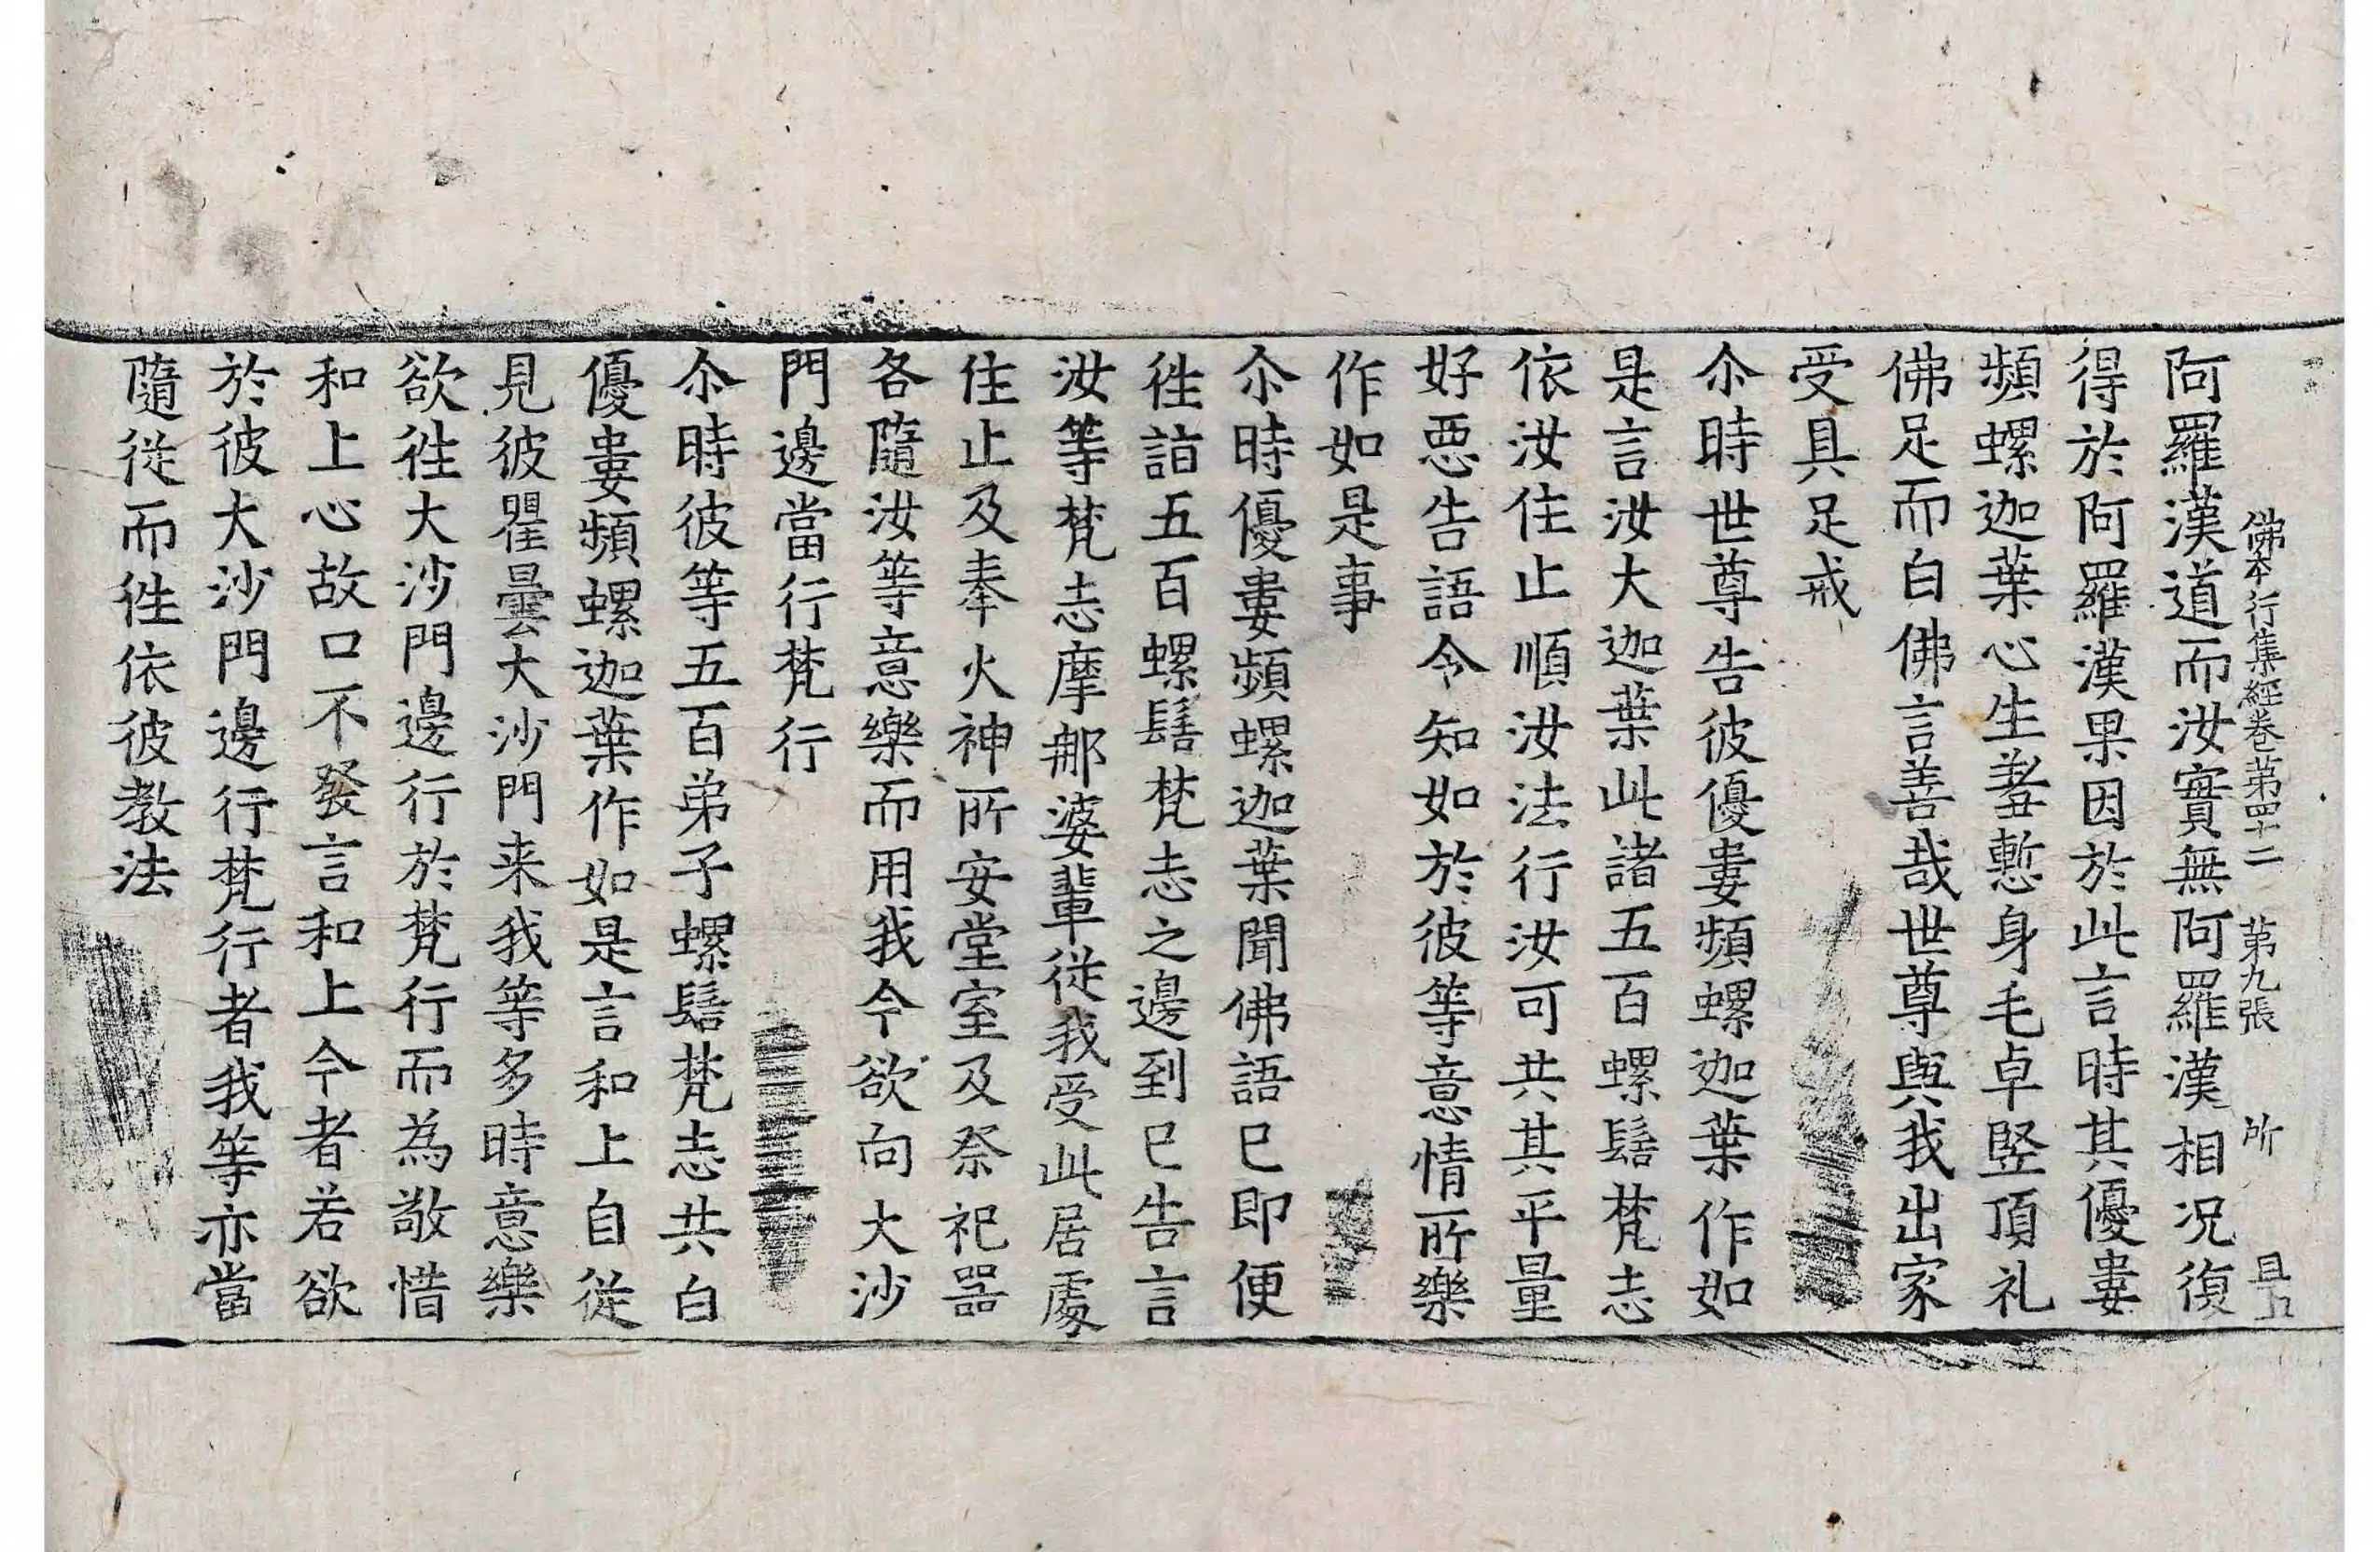 佛本行集經卷第四十二 第九張 所
阿羅漢道而汝實無阿羅漢相况復
得於阿羅漢果因於此言時其優婁
頻螺迦葉心生羞慙身毛卓竖頂礼
佛足而白佛言善哉世尊與我出家
受具足戒
尒時世尊告彼優婁頻螺迦葉作如
是言汝大迦葉此諸五百螺髻梵志
依汝住止順汝法行汝可共其平量
好惡告語令知如於彼等意情所樂
作如是事
尒時優婁頻螺迦葉聞佛語已即便
徃詣五百螺髻梵志之邊到已告言
汝等梵志摩那婆輩從我受此居處
住止及奉火神所安堂室及祭祀器
各隨汝等意樂而用我今欲向大沙
門邊當行梵行
尒時彼等五百弟子螺髻梵志共白
優婁頻螺迦葉作如是言和上自從
見彼瞿曇大沙門来我等多時意樂
欲徃大沙門邊行於梵行而為敬惜
和上心故口不發言和上今者若欲
於彼大沙門邊行梵行者我等亦當
隨從而徃依彼教法